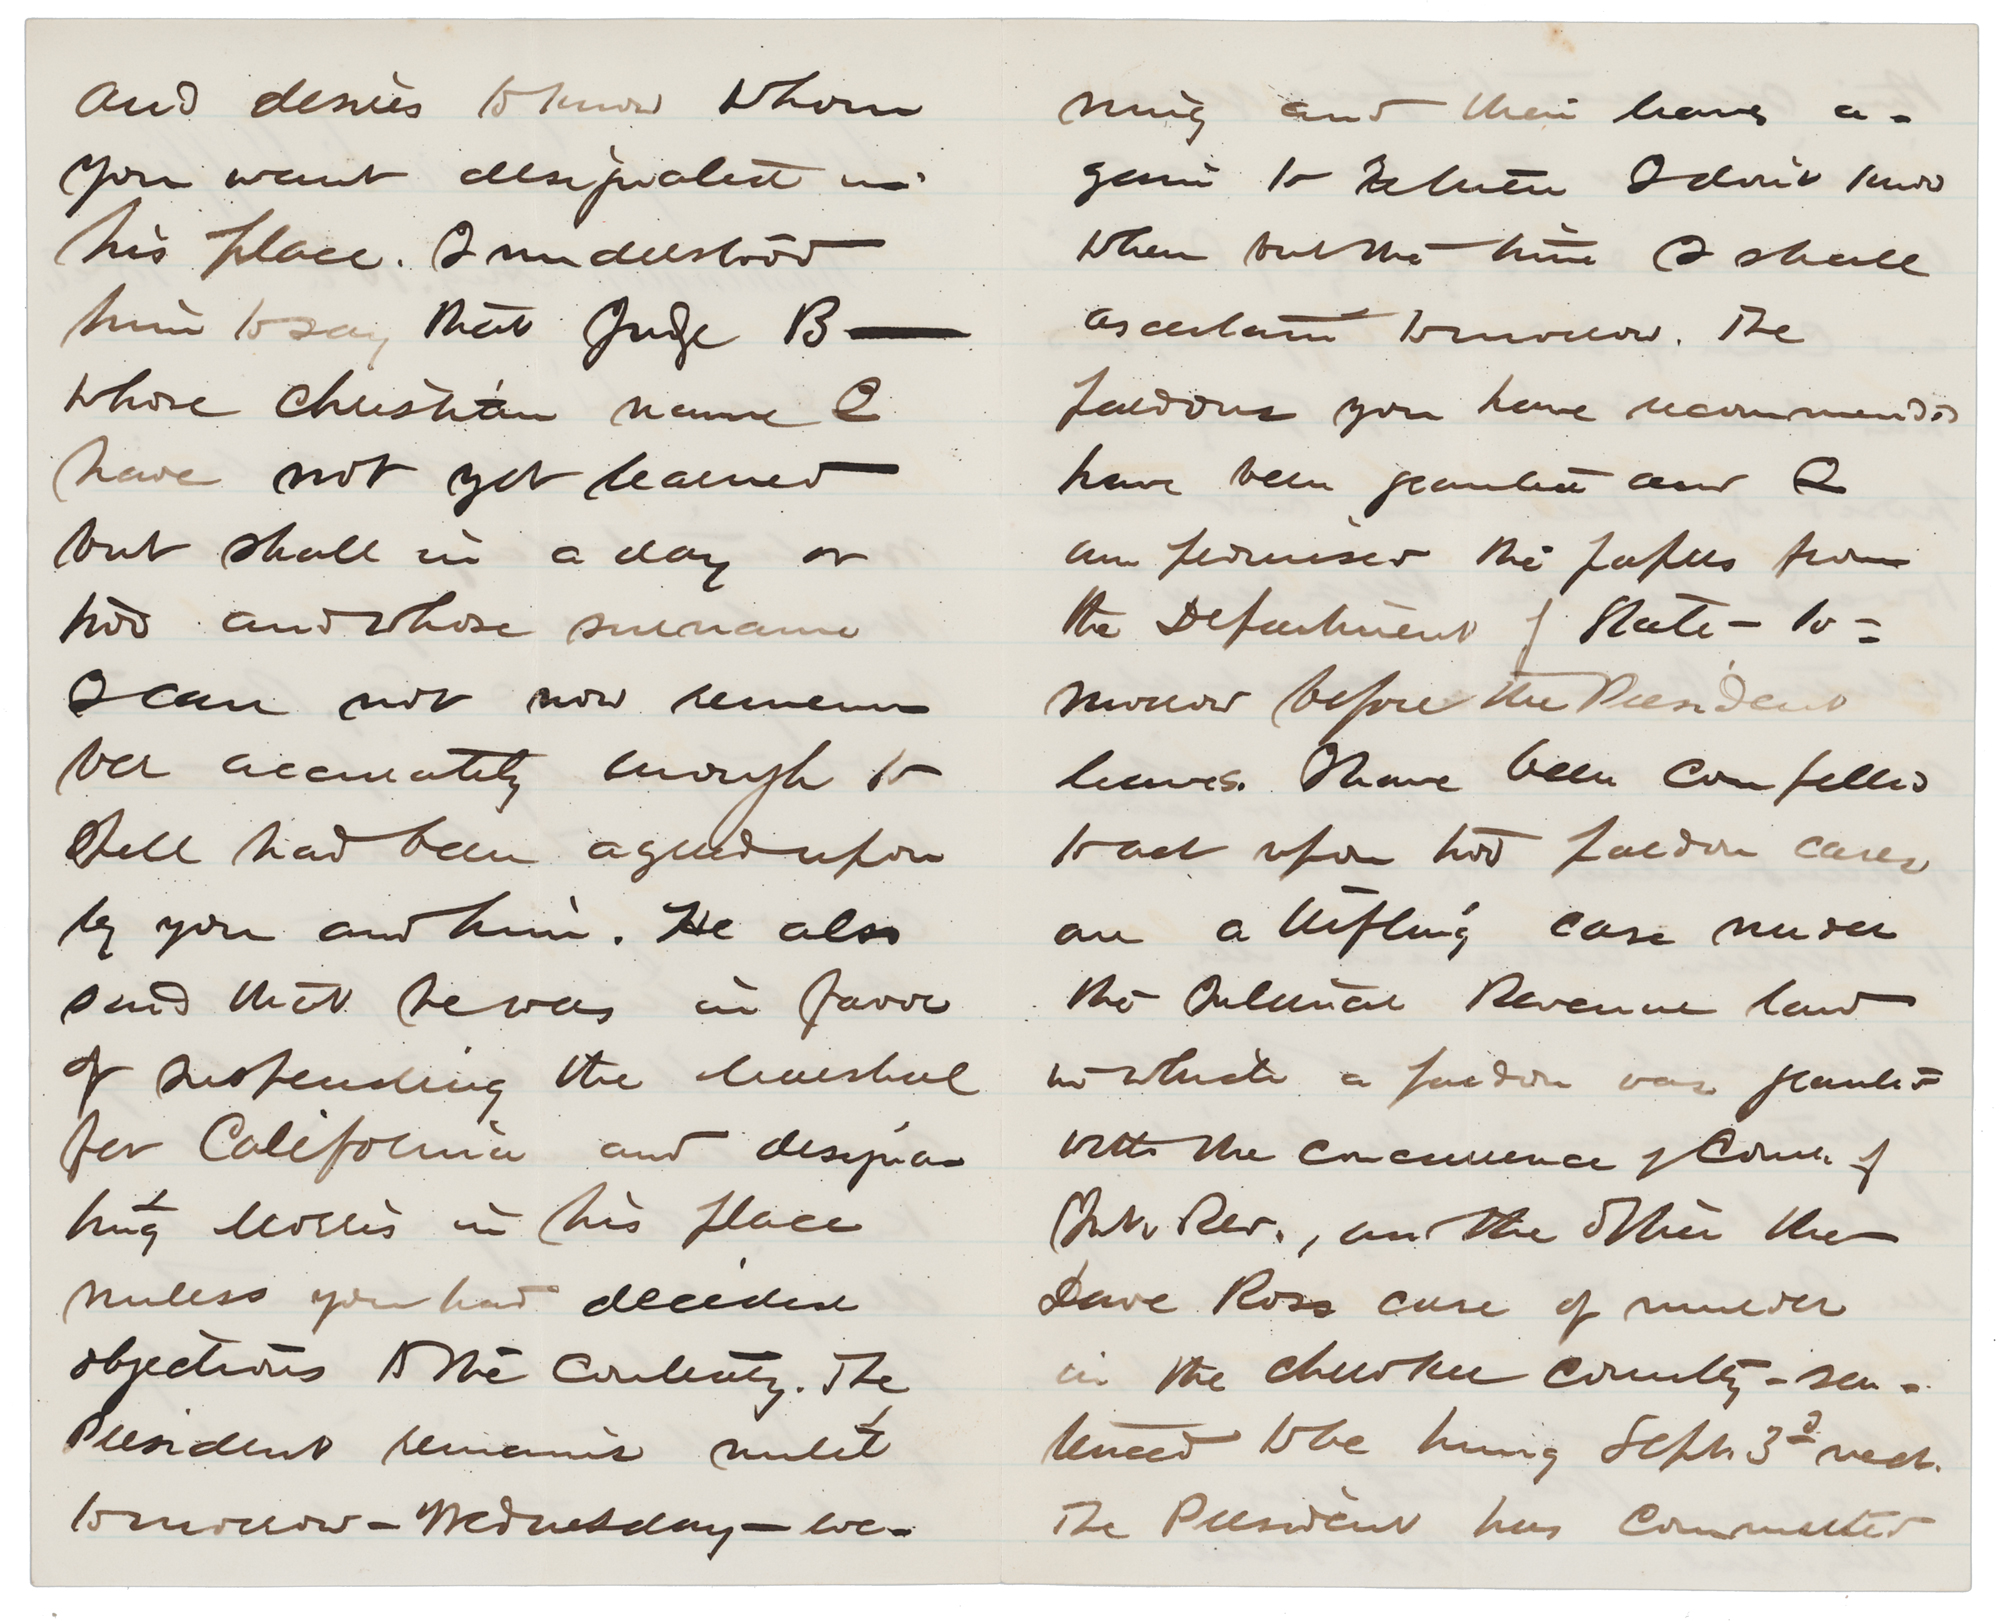 and desires to know whom
you want designated in
his place. I understood
him to say that Judge B——
whose christian name I
have not yet learned
but shall in a day or
two and whose surname
I can not now remem
ber accurately enough to
spell had been agreed upon
by you and him. He also
said that he was in favor
of suspending the Marshal
for California and designa-
ting Morris in his place
unless you had decided
objections to the contrary. The
President remains until
tomorrow - Wednesday - eve-
ning and then leaves a-
gain to return I don't know
when but the time I shall
ascertain tomorrow. The
pardons you have recommended
have been granted and I
am promised the papers from
the Department of State - to-
morrow before the President
leaves. I have been compelled
to act upon two pardon cases
one a trifling case under
the Internal Revenue law
in which a pardon was granted
with the concurrence of Comr. of
Int. Rev., and the other the
Dave Ross case of murder
in the Cherokee Country - sen-
tenced to be hung Sept. 3d next.
The President has commuted